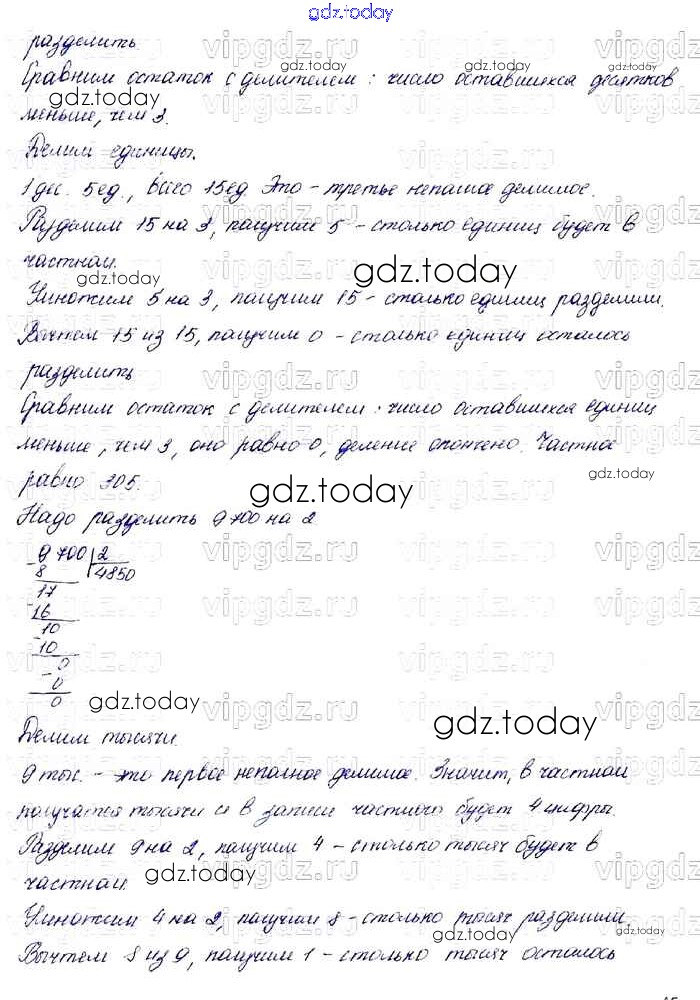 gdz.today
разделить.
Сравним остаток с делителем: число оставшихся десятков
меньше, чем 3.
Делим единицы.
1 дес. 5 ед., всего 15 ед. Это - третье неполное делимое.
Разделим 15 на 3, получим 5 - столько единиц будет в
частном.
Умножим 5 на 3, получим 15 - столько единиц разделили.
Вычтем 15 из 15, получим 0 - столько единиц осталось
разделить
Сравним остаток с делителем: число оставшихся единиц
меньше, чем 3, оно равно 0, деление окончено. Частное
равно 305.
Надо разделить 9 700 на 2
9 700 2
8 4850
17
16
10
10
0
0
0
Делим тысячи.
9 тыс. - это первое неполное делимое. Значит, в частном
получатся тысячи и в записи частного будет 4 цифры.
Разделим 9 на 2, получим 4 - столько тысяч будет в
частном.
Умножим 4 на 2, получим 8 - столько тысяч разделили.
Вычтем 8 из 9, получим 1 - столько тысяч осталось